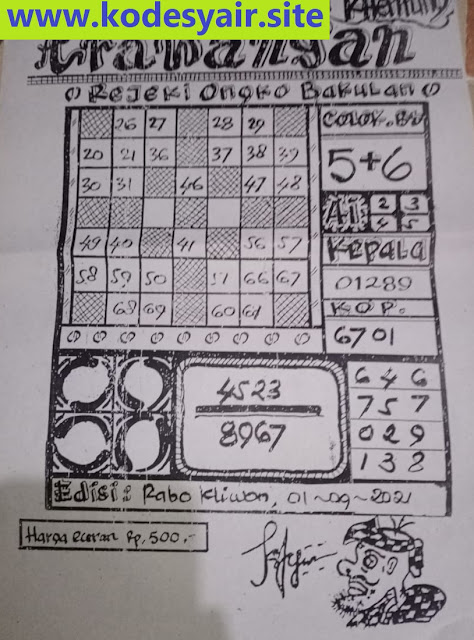 www.kodesyair.site
Erawangan
Rejeki Ongko Bakulan
26 27 28 29
20 21 36 37 38 39
30 31 46 47 48
49 40 41 56 57
58 59 50 51 66 67
68 69 60 61
COLOK.BU
5+6
A1 2 3
4 5
KEPALA
01289
KOP.
6701
4523
8967
646
757
029
138
Edisi: Rabo Kliwon, 01-09-2021
Harga eceran Rp, 500,-